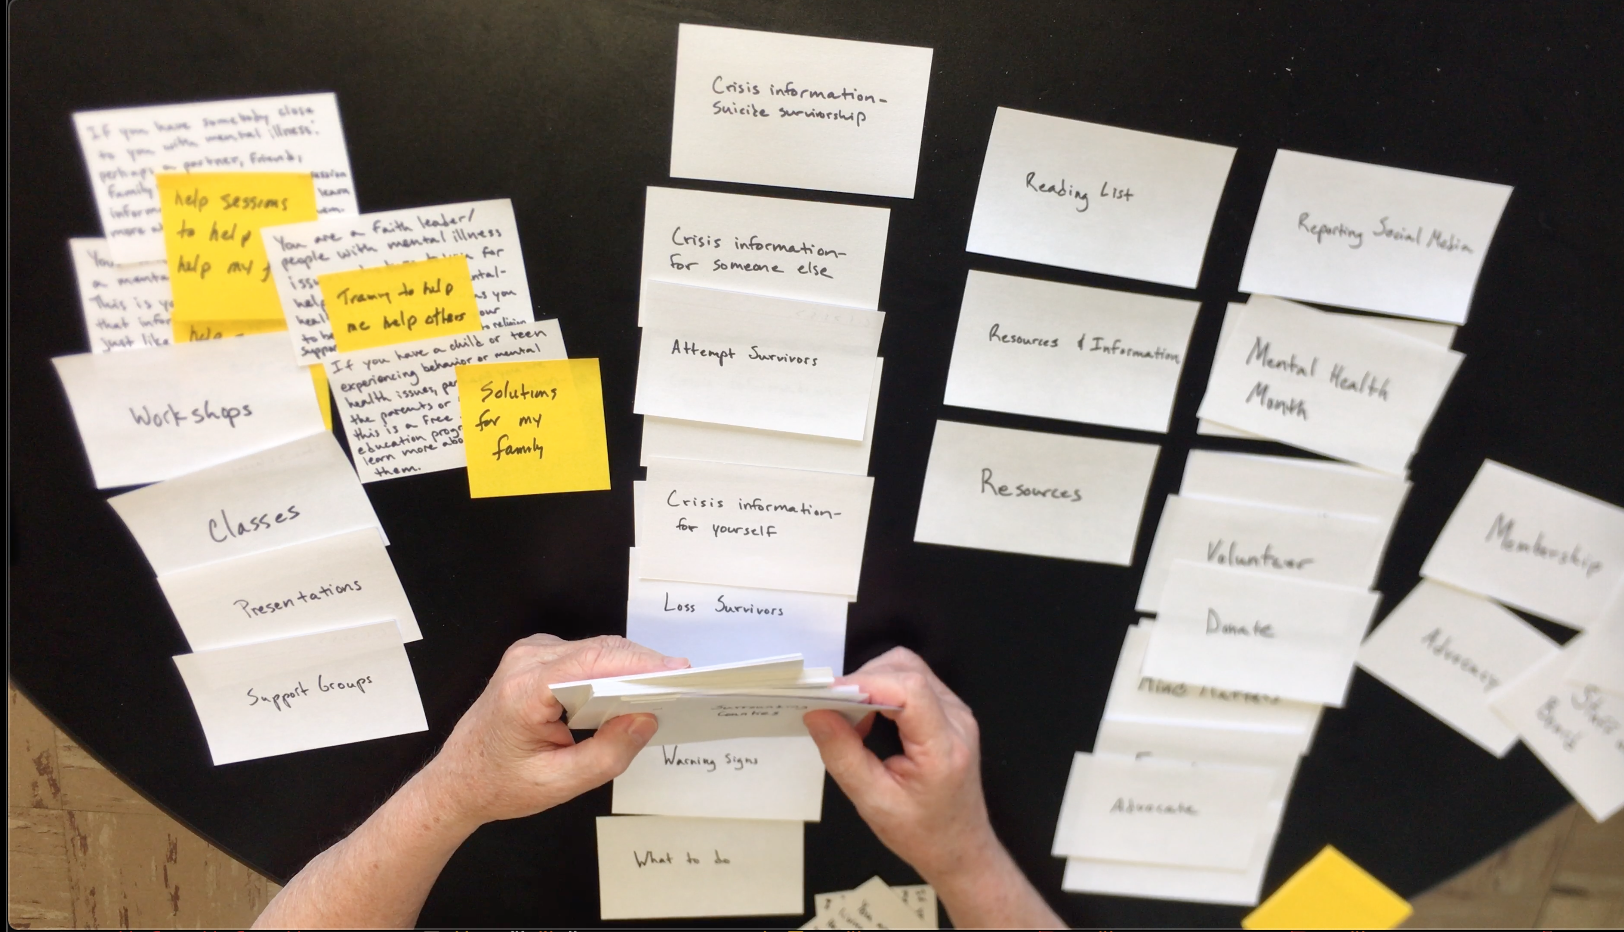 If you have somebody close
to you with mental illness,
perhaps a partner, friend,
family
session
learn
inform
more a
help sessions
to help
help my f
help
You
a menta
This is yo
that infor
just like
You are a faith leader/
people with mental illness
issu
for
help
ental-
heal
as you
to he
our
suppor
to religion
Traing to help
me help others
If you have a child or teen
experiencing behavior or mental
health issues, per
the parents or
this is a free
education progr
learn more abo
them.
Solutions
for my
family
Workshops
Classes
Presentations
Support Groups
Crisis information-
Suicide survivorship
Crisis information-
for someone else
Attempt Survivors
Crisis information-
for yourself
Loss Survivors
Surrounding
Counties
Warning Signs
What to do
Reading List
Resources & Information
Resources
Reporting Social Media
Mental Health
Month
Volunteer
Donate
Mind Matters
Advocate
Membership
Advocacy
Board